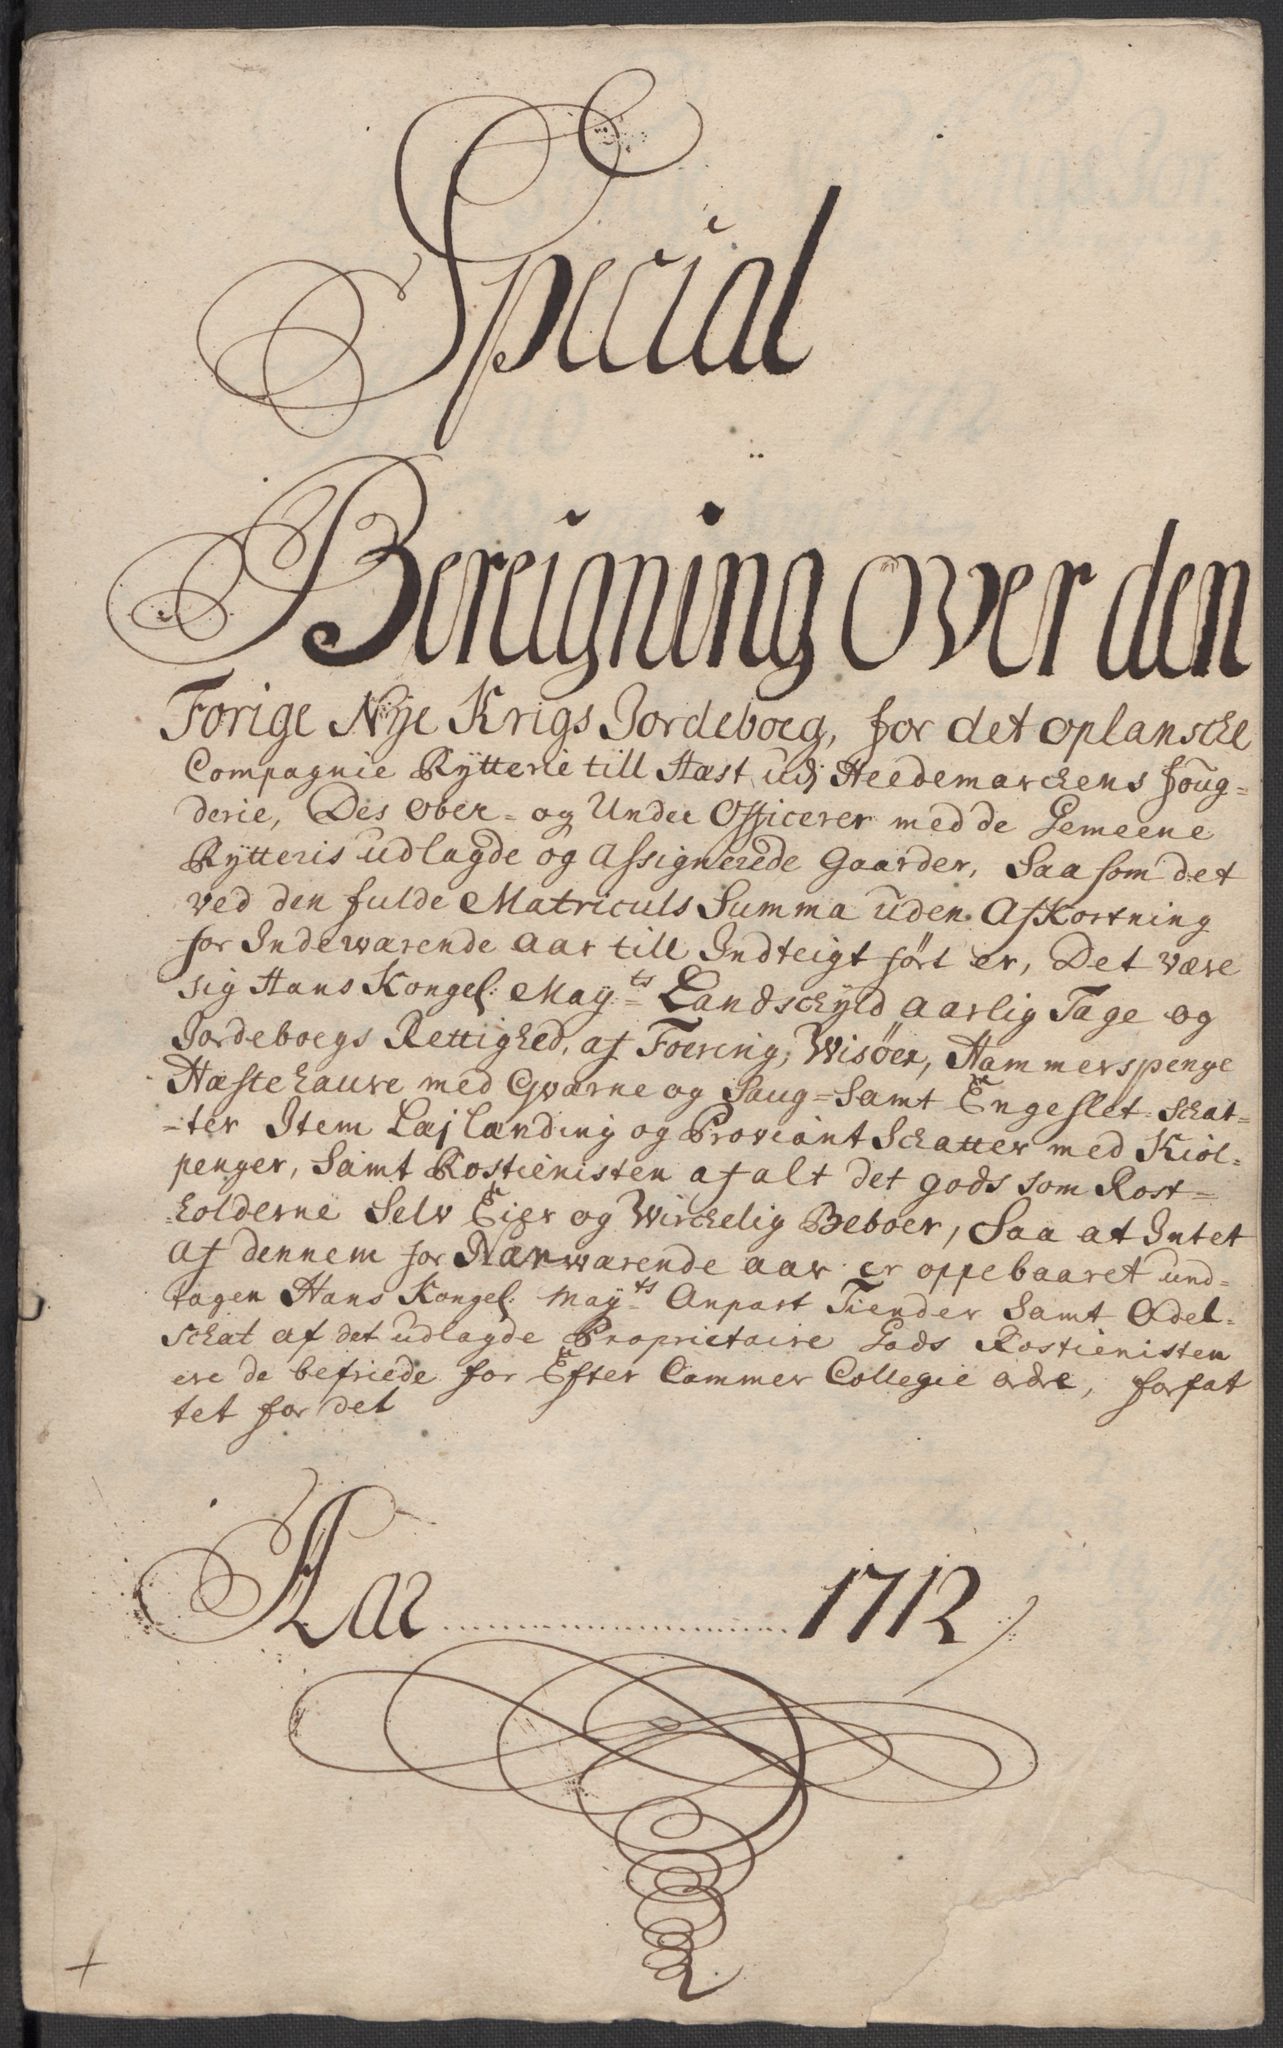 Special
Bereigning over den
Forige Nÿe Krigs Jordeboeg, for det oplansche
Compagnie Rÿtterie till Hæst udj Heedemarchens foug=
derie, Des Ober= og Under Officerer med de Gemeene
Rÿtteris udlagde og Assignerede Gaarder, Saa som det
ved den fulde Matriculs Summa uden Afkortning
for Indewærende Aar till Indteigt ført er, Det være
sig Hans Kongel: May:ts Landschÿld Aarlig Tage og
Jordeboegs Rettighed, af Foering, Wisøer, Hammerspenge
Hæstehaure med Qværne og Saug= Samt Engeslet Schat=
=ter Item Lajlænding og Proviant Schatter med Kiøl=
penger, Samt Rostienisten af alt det gods som Rost=
=holderne Selv Eier og Wirchelig Beboer, Saa at Intet
af dennem for Nærwærende aar er oppebaaret und=
tagen Hans Kongel: May:ts Anpart Tiender Samt Odel=
schat af det udlagde Proprietaire Gods Rostienisten
ere de befriede for Efter Cammer Collegie ordre, forfat
tet for det
Aar ........................ 1712